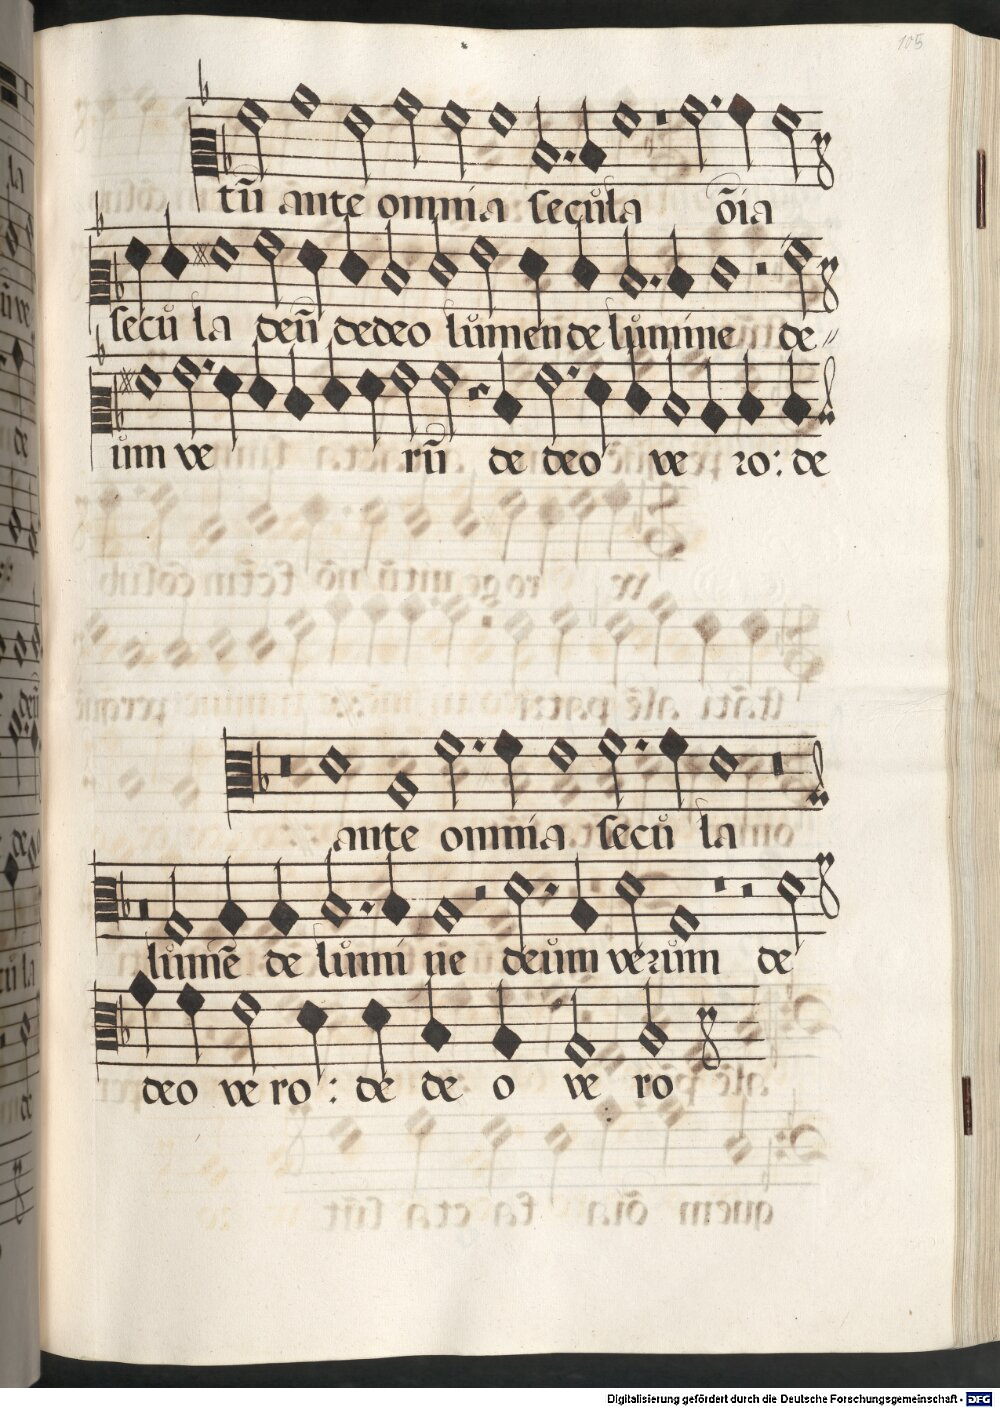 105
tū ante omnia secula ōia
secu la deū dedeo lumen de lumine de
um ve rū de deo ve ro: de
ante omnia secu la
lumē de lumi ne deum verum de
deo ve ro: de de o ve ro
Digitalisierung gefördert durch die Deutsche Forschungsgemeinschaft - DFG